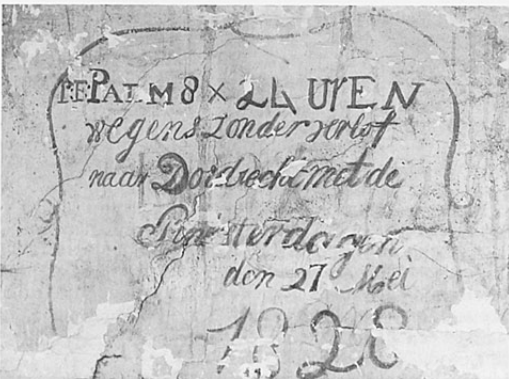 DE PALM 8 × 24 UREN
wegens zonder verlof
naar Dordrecht met de
Pinksterdagen
den 27 Mei
1828